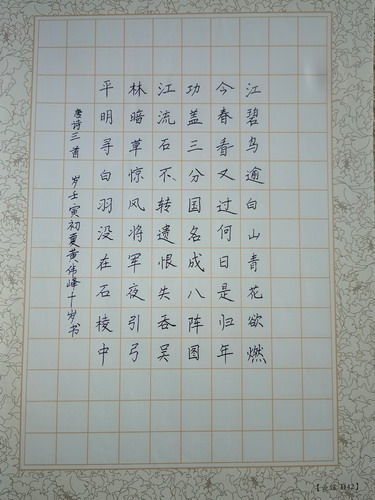 江碧鸟逾白山青花欲燃
今春看又过何日是归年
功盖三分国名成八阵图
江流石不转遗恨失吞吴
林暗草惊风将军夜引弓
平明寻白羽没在石棱中
唐诗三首 岁壬寅初夏黄伟峰十岁书
B42